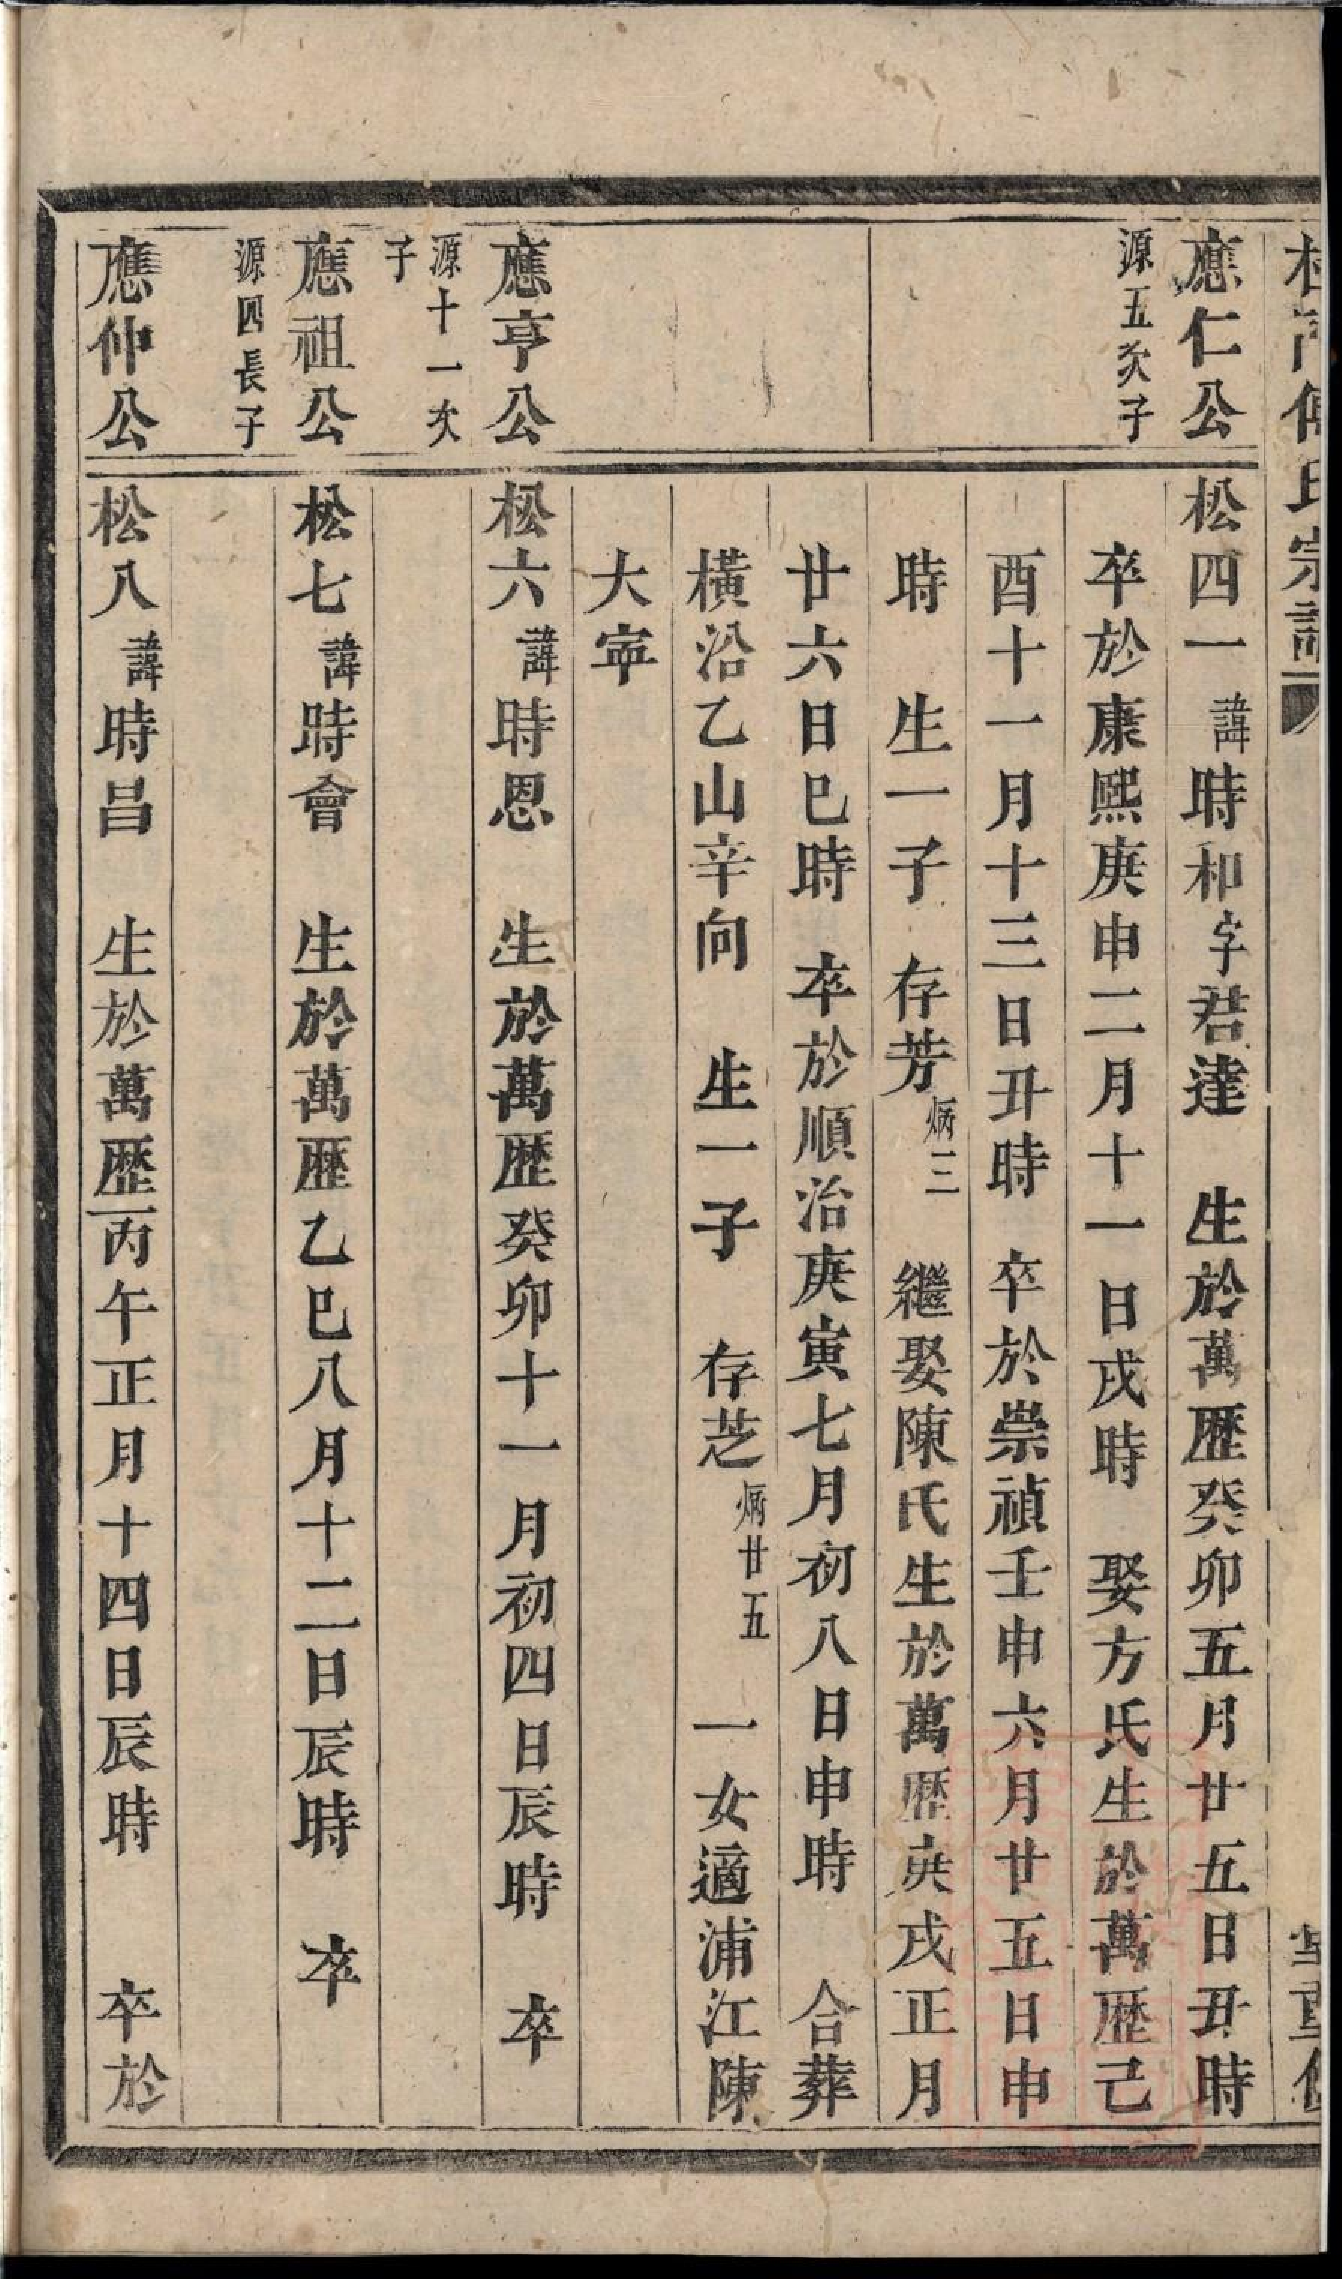 傅氏宗譜
應仁公
源五次子
松四一諱時和字君達 生於萬歷癸卯五月廿五日丑時
卒於康熙庚申二月十一日戌時 娶方氏生於萬歷己
酉十一月十三日丑時 卒於崇禎壬申六月廿五日申
時 生一子 存芳炳三 繼娶陳氏生於萬歷庚戌正月
廿六日巳時 卒於順治庚寅七月初八日申時 合葬
橫沿乙山辛向 生一子 存芝炳廿五 一女適浦江陳
大寗
應亨公
源十一次
子
松六諱時恩 生於萬歷癸卯十一月初四日辰時 卒
應祖公
源四長子
松七諱時會 生於萬歷乙巳八月十二日辰時 卒
應仲公
松八諱時昌 生於萬歷丙午正月十四日辰時 卒於